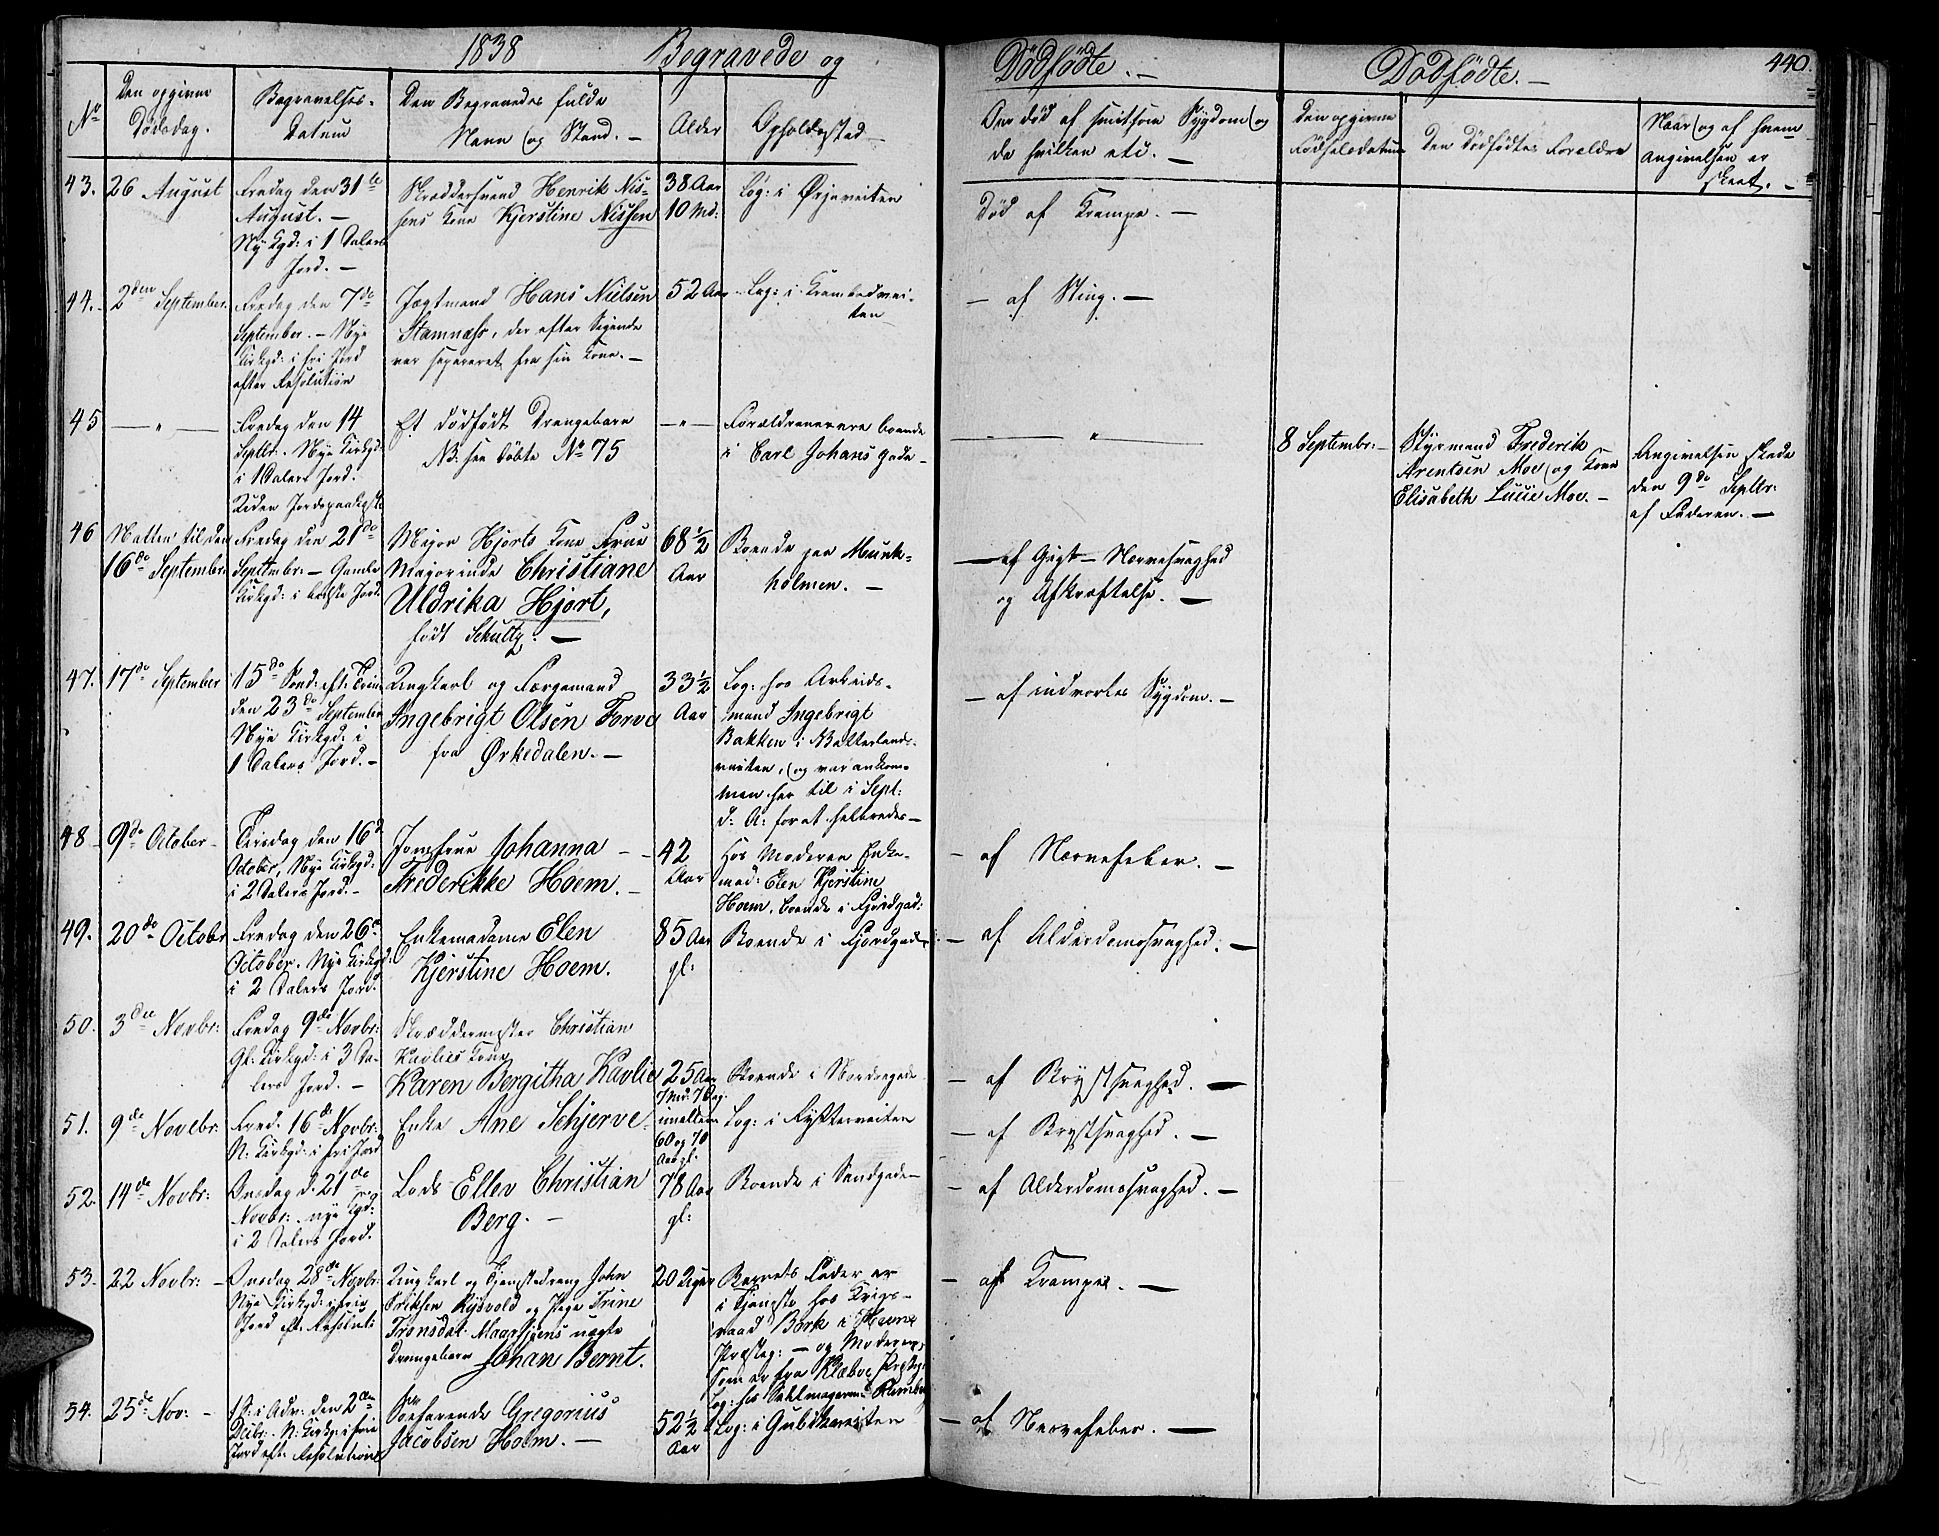 1838 Begravede og Dödfödte. — Dödfödte. — 440.
No
Den opgivne Dødsdag.
Begravelses-Datum
Den Begravedes fulde Navn og Stand. —
Alder
Opholdssted —
Om død af smitsom Sygdom og da hvilken etc. —
Den opgivne Fødselsdatum
Den Dødfødtes Forældre
Naar og af hvem Angivelsen er skeet. —
43. 26 August
Fredag den 31te
August. —
Ny Kgd: i 1 Dalers
Jord. —
Skræddersvend Henrik Nis-
sens Kone Kjerstine Nissen
38 Aar
10 Md:
Log: i Ørjaveiten
Død af Krampe. —
44. 2den September
Fredag den 7de
September. — Nye
Kirkgd: i fri Jord
efter Resolution
Jægtmand Hans Nielsen
Stamnæss, der efter Sigende
var separeret fra sin Kone. —
52 Aar
Log: i Krambodvei-
ten
— af Sting. —
45 — „ —
Fredag den 14
Septbr. Nye Kirkgd:
i 1 Dalers Jord.
Uden Jordspaakastelse
Et dödfödt Drengebarn
NB. see Döbte No 75
— „ —
Forældrenerne boende
i Carl Johans gade —
— „ —
8 Septembr: —
Styrmand Frederik
Arentsen Moe og Kone
Elisabeth Lucie Moe. —
Angivelsen skede
den 9de Septbr:
af Faderen. —
46 Natten til den
16de September
Fredag den 21de
Septembr: — Gamle
Kirkgd: i bedste Jord
Major Hjorts Kone Frue
Majorinde Christiane
Uldrika Hjort,
født Schultz. —
68 1/2
Aar
Boende paa Munk-
holmen. —
— af Gigt — Nervesvaghed
og Afkræftelse. —
47. 17de September
15de Sönd: eft: Trin:
den 23de September
Nye Kirkgd: i
1 Dalers Jord. —
Ungkarl og Færgemand
Ingebrigt Olsen Forve
fra Ørkedalen. —
33 1/2
Aar
Log: hos Arbeids-
mand Ingebrigt
Bakken i Vatterlands-
veiten, og var ankom-
men her til i Sept:
d: A: for at helbredes —
— af indvortes Sygdom. —
48 9de October —
Tirsdag den 16d
October, Nye Kirkgd:
i 2 Dalers Jord. —
Jomfrue Johanna —
Frederikke Hoem. —
42
Aar
Hos Moderen Enke-
mad: Elen Kjerstine
Hoem, boende i Fjordgad:
— af Nervefeber. —
49. 20de Octobr
Fredag den 26d
October. Nye Kirkgd:
i 2 Dalers Jord.
Enkemadame Elen
Kjerstine Hoem.
85 Aar
gl:
Boende i Fjordgade
— af Alderdomssvaghed. —
50. 3die Novbr:
Fredag 9de Novbr:
Gl: Kirkgd: i 3 Da-
lers Jord. —
Skræddermester Christian
Kavlies Frue
Karen Bergitha Kavlie
25 Aar
7 Md: 7 Dag.
Boende i Nordregade
— af Brystsvaghed. —
51. 9de Novebr:
Fred. 16de Novbr:
N: Kirkgd: i fri Jord
Enke Ane Schjerve.
imellem
60 og 70
Aar gl.
Log: i Ryssterveiten
— af Brystsvaghed. —
52. 14de Novbr:
Onsdag d: 21de
Novbr: nye Kgd:
i 2 Dalers Jord.
Lods Ellev Christian
Berg. —
78 Aar
gl:
Boende i Sandgade —
— af Alderdomssvaghed. —
53. 22 Novbr: —
Onsdag 28de Novbr:
Nye Kirkgd: i frie
Jord eft: Resoluti:
Ungkarl og Tjenestedreng John
Eriksen Rysvold og Pige Trine
Tronsdat: Maarstjens uægte
Drengebarn Johan Bernt.
20 Uger
Barnets Fader er
i Tjeneste hos Krigs-
raad Bork i Hevne
Præsteg: — og Moderen,
som er fra Klæboe Prestg:
Log: hos Sadelmagermd: Ramberg
— af Krampe. —
54. 25de Nov: —
1 S: i Adv: den 2den
Decbr. N: Kirkg: i frie
Jord eft: Resolution
Søefarende Gregorius
Jacobsen Holm. —
52 1/2
Aar
Log: i Gubskeveiten
— af Nervefeber. —